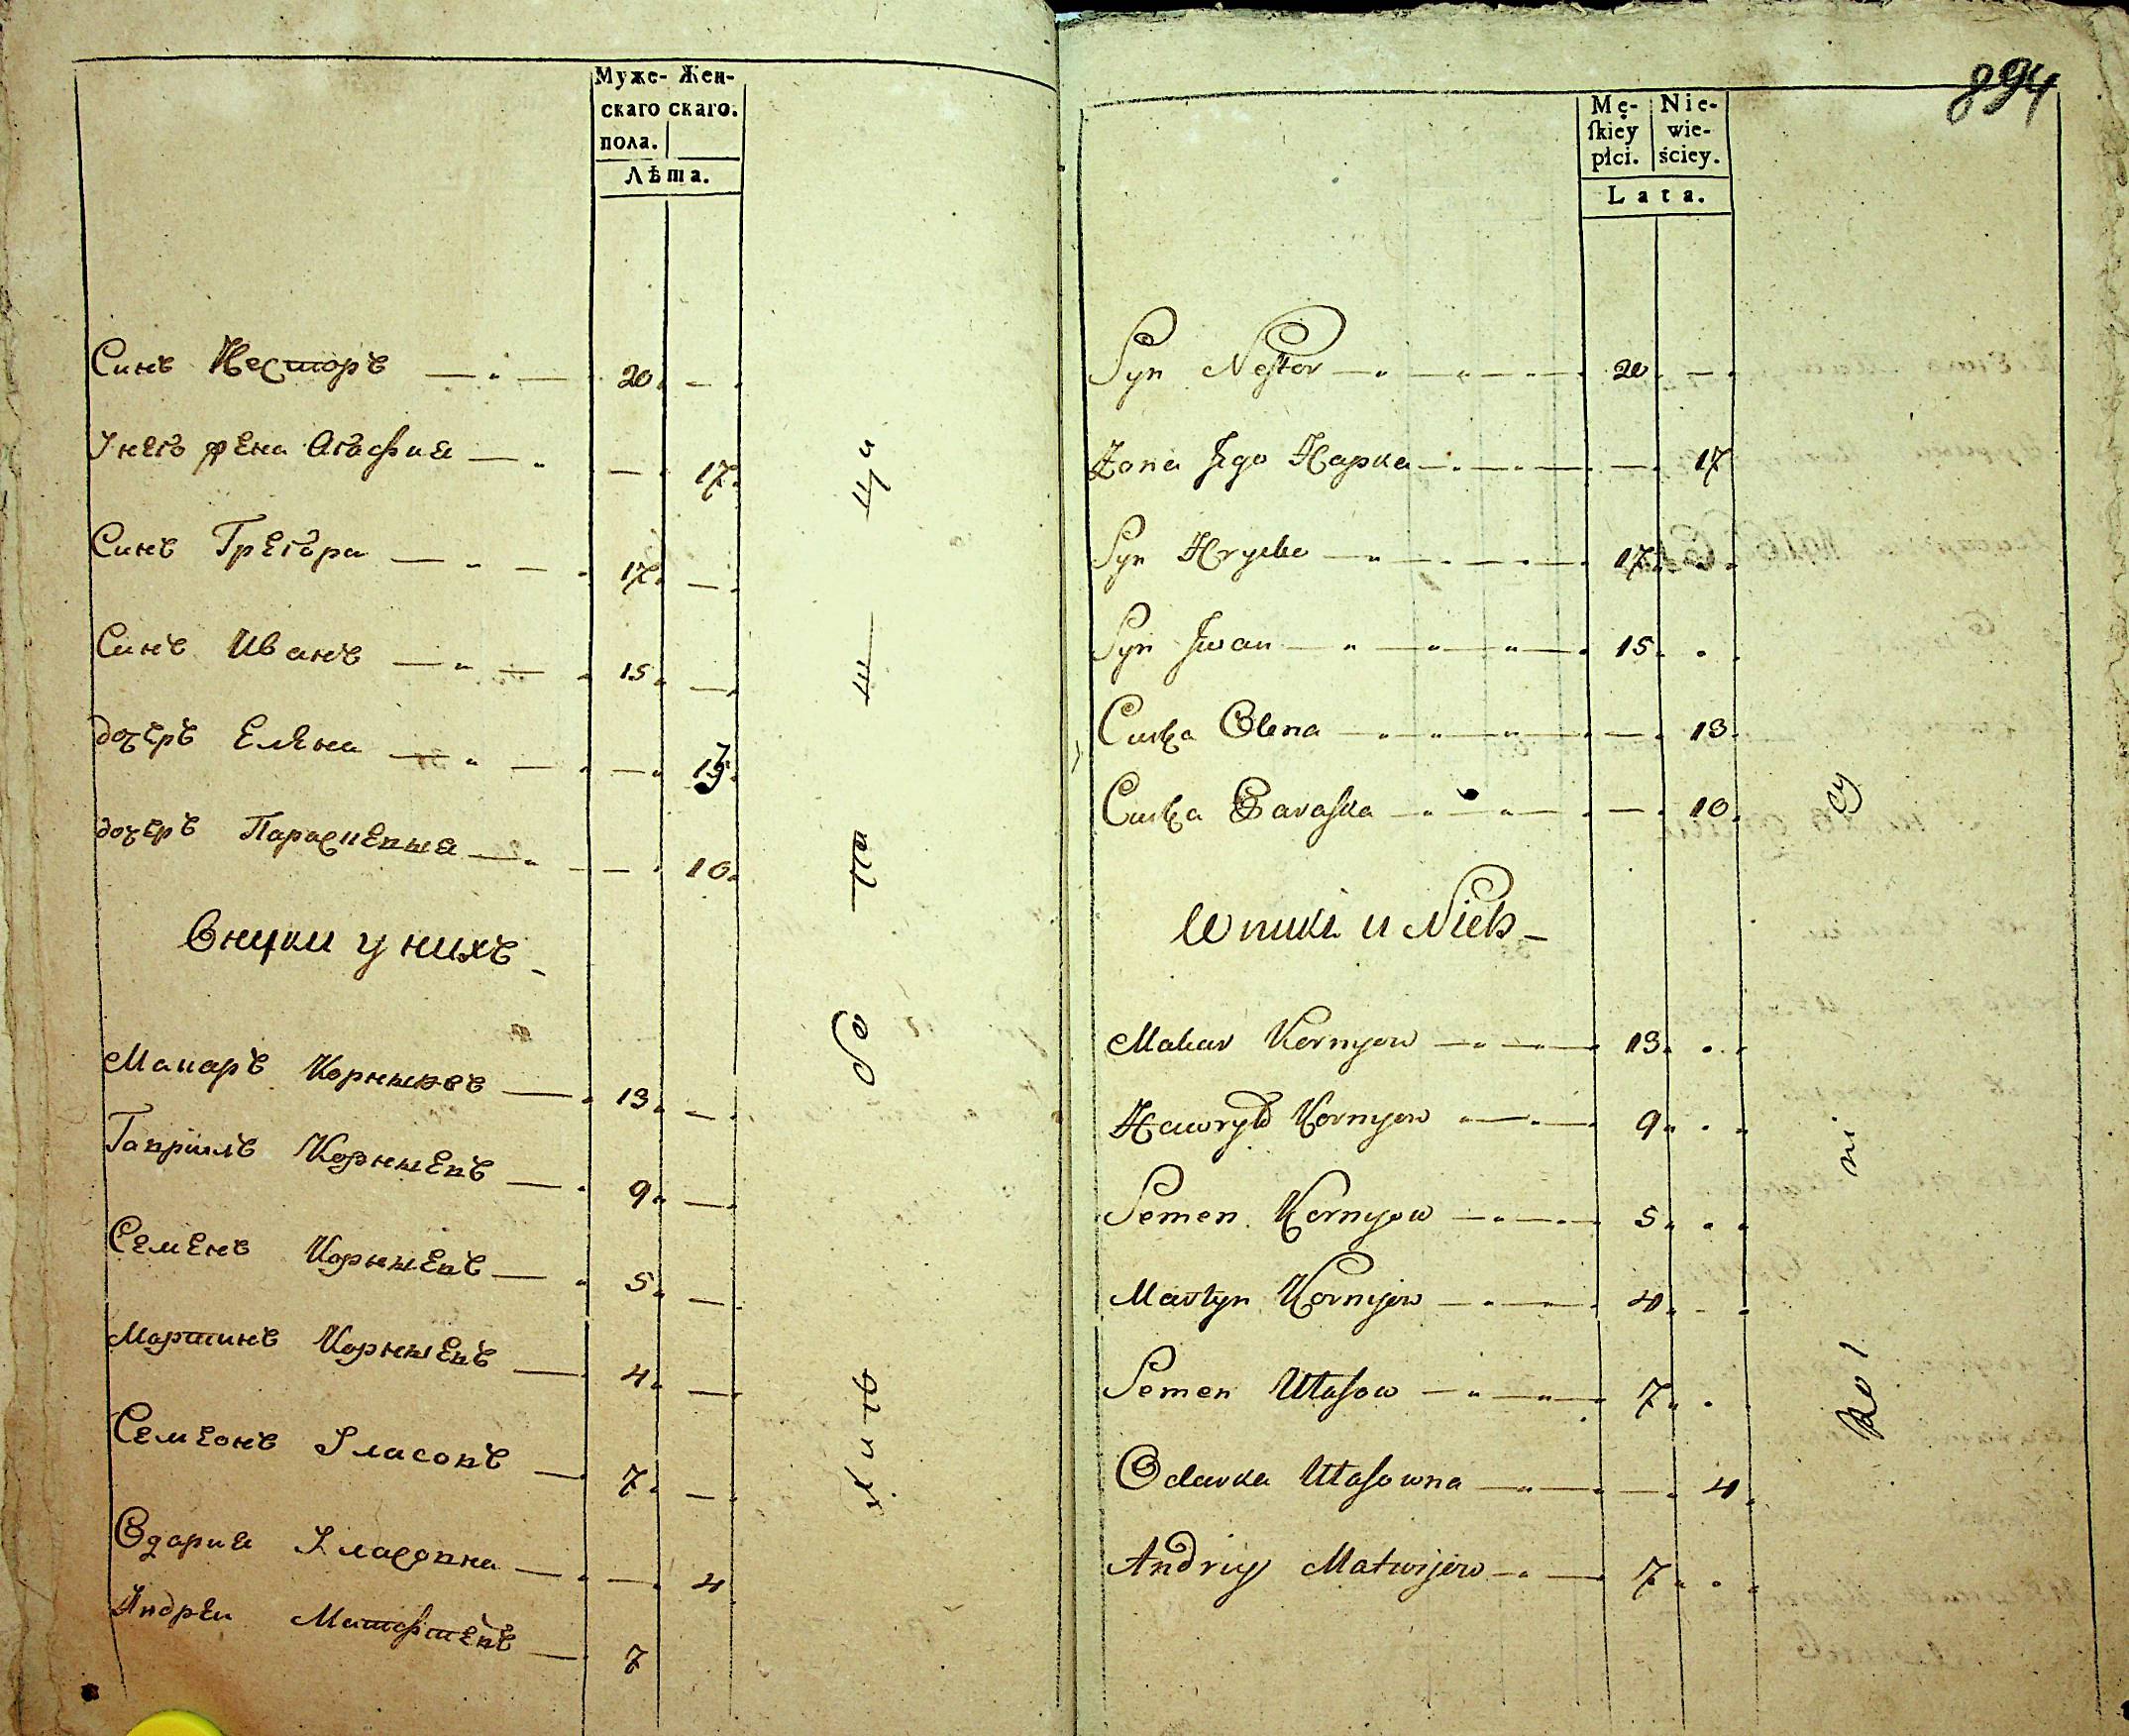 Муже- Жен-
скаго скаго.
пола.
Лѣта.
Синъ Несторъ 20
У него жена Агафия 17
Синъ Грегора 17
Синъ Иванъ 15
дочеръ Елена 13
дочеръ Параскевия 10
Внуки у нихъ
Макаръ Корниевъ 13
Гаврилъ Корниевъ 9
Семенъ Корниевъ 5
Мартинъ Корниевъ 4
Семеонъ Уласовъ 7
Одария Уласовна 4
Андреи Матфиевъ 7
894
Mę- Nie-
ſkiey wie-
płci. ściey.
Lata.
Syn Nestor 20
Żona Jego Hapka 17
Syn Hryhe 17
Syn Jwan 15
Curka Olena 13
Curka Paraska 10
Wnuki u Nich
Makar Kornyow 13
Hawryło Kornyow 9
Semen Kornyow 5
Martyn Kornijow 4
Semen Ułasow 7
Odarka Ułasowna 4
Andriy Matwijow 7